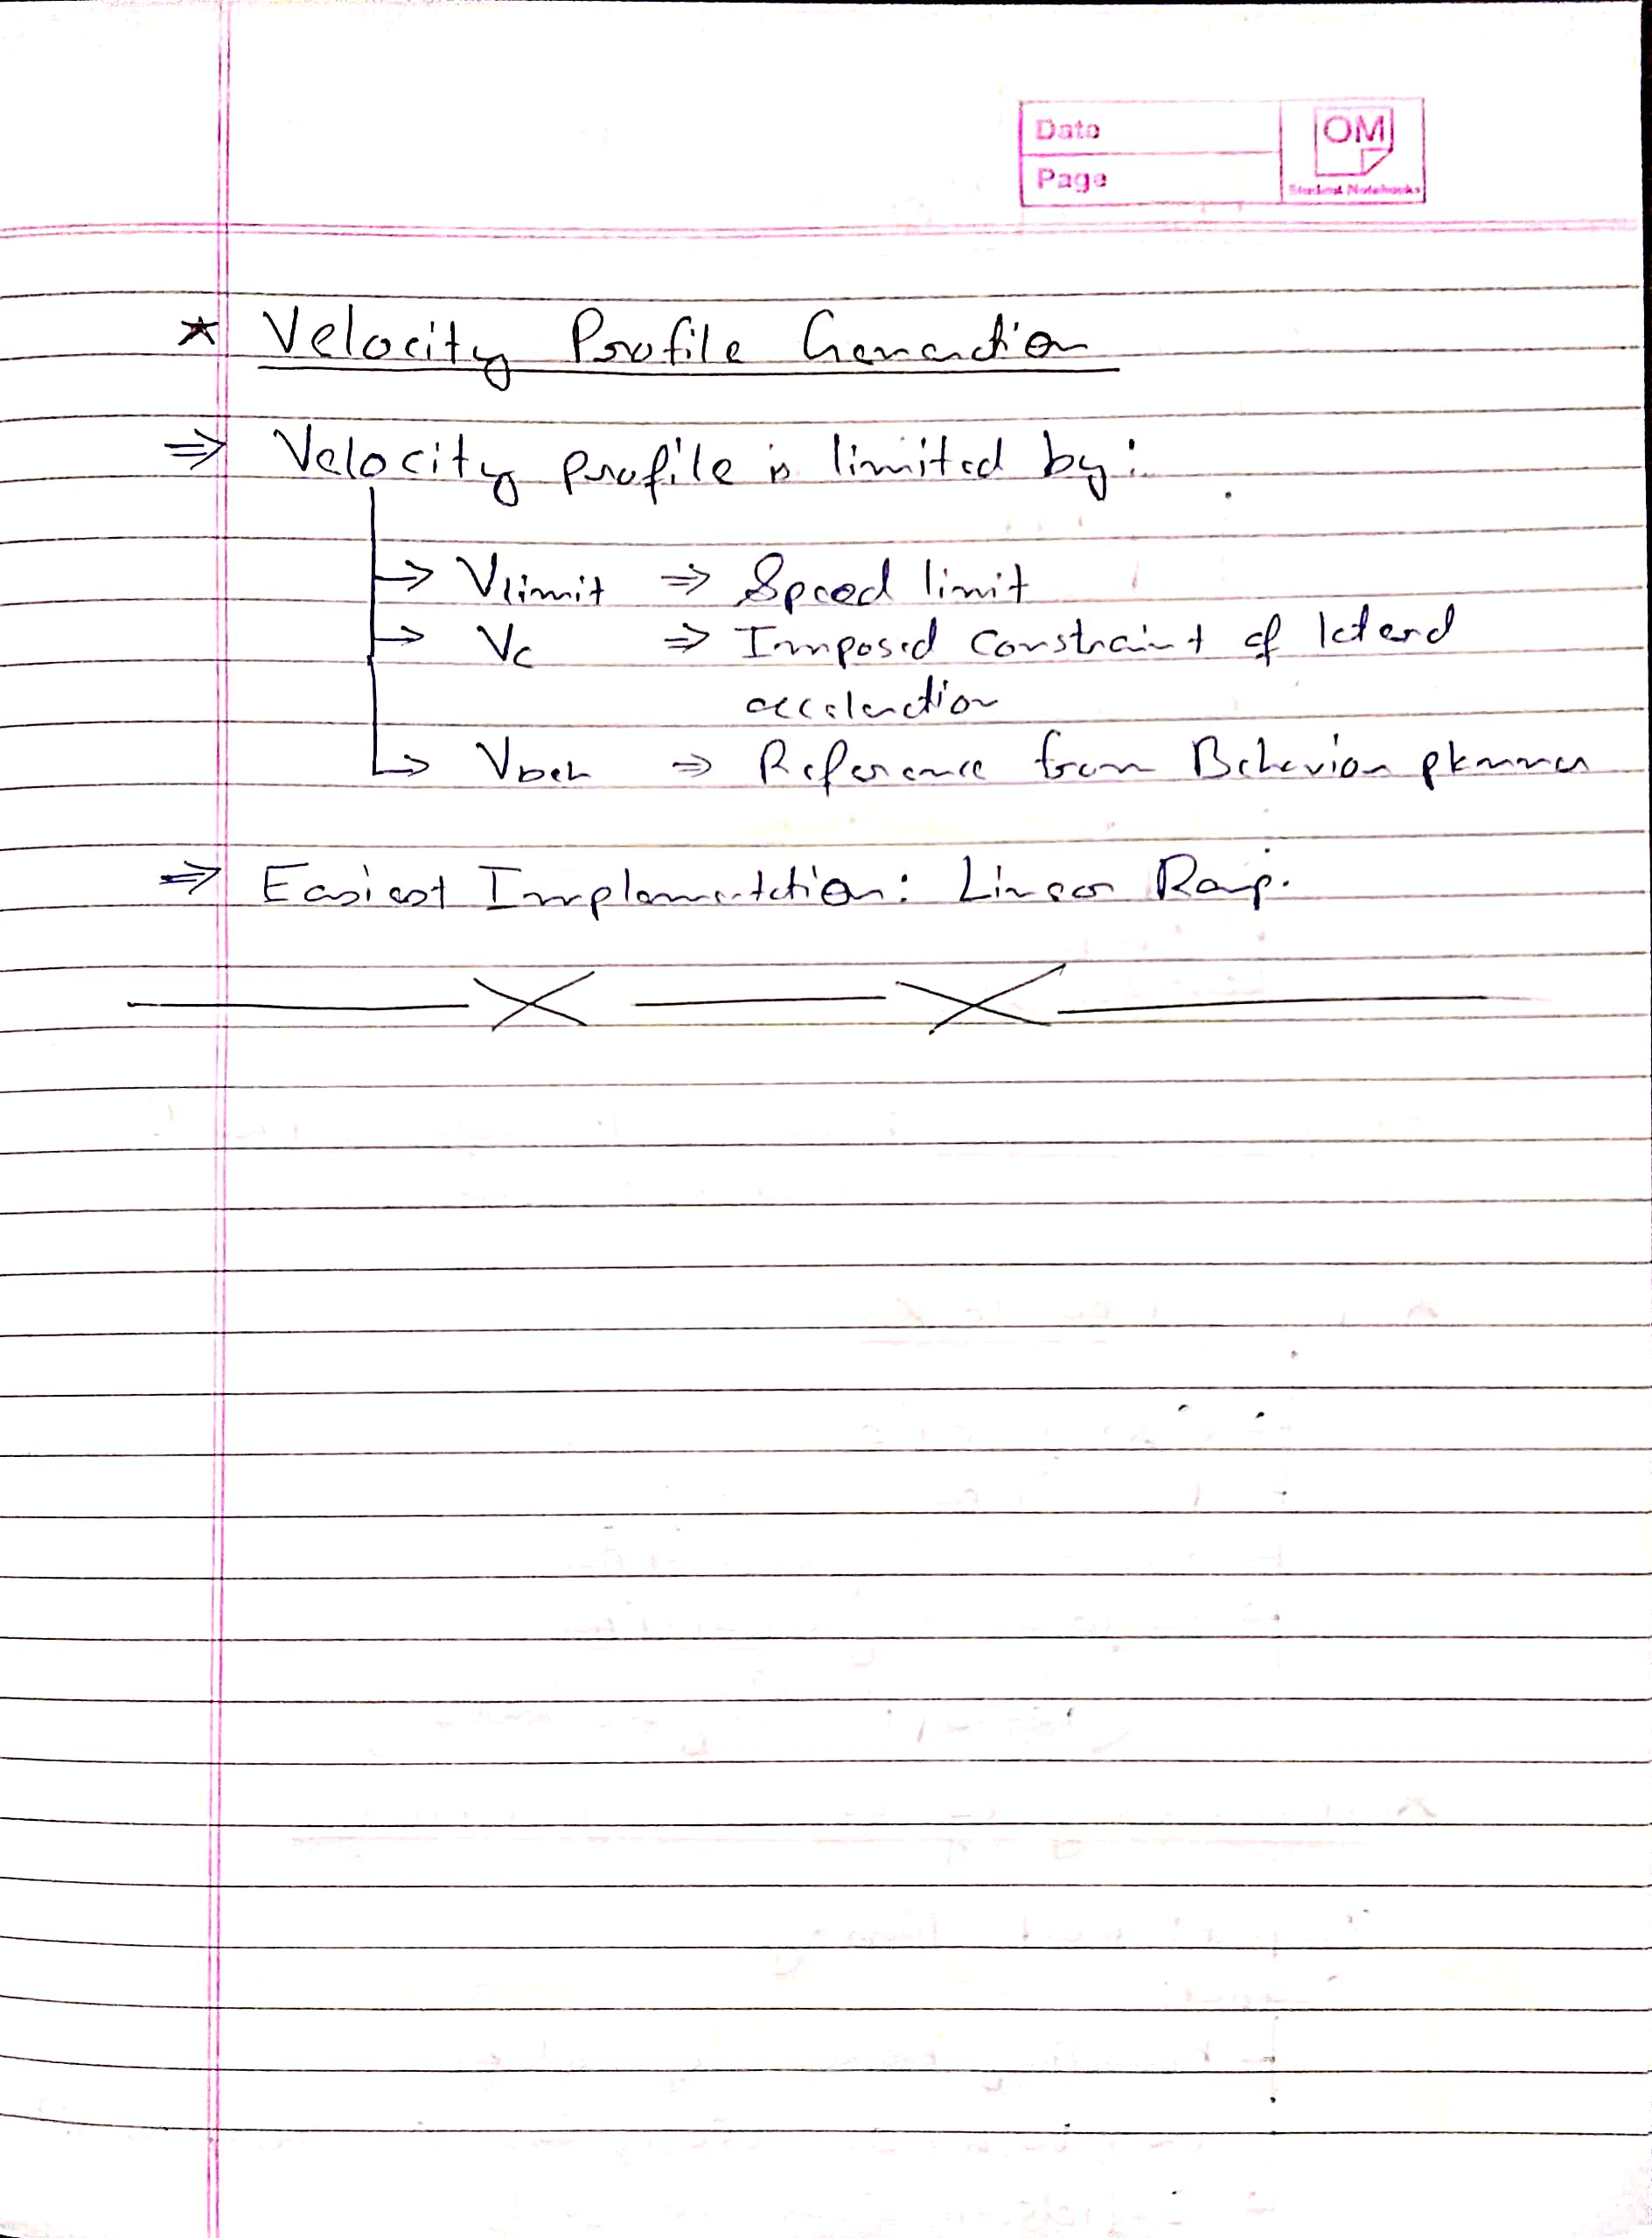 Date
Page
OM
Student Notebooks
* Velocity Profile Generation
⇒ Velocity profile is limited by:
→ Vlimit ⇒ Speed limit
→ Vc ⇒ Imposed constraint of lateral
acceleration
→ Vbeh ⇒ Reference from Behavior planner
⇒ Easiest Implementation: Linear Ramp.